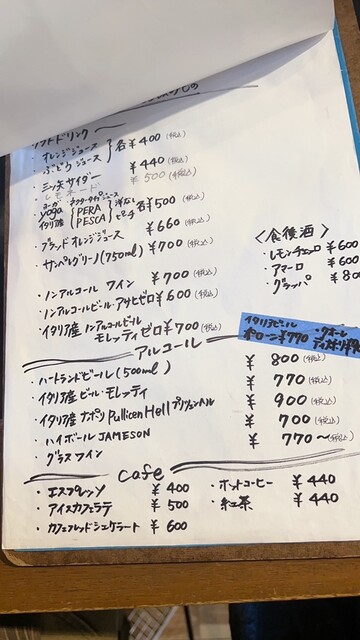 ソフトドリンク
・オレンジジュース
・ぶどうジュース
各¥400(税込)
・三ツ矢サイダー ¥440(税込)
・レモネード ¥500(税込)
・ヨーガ ネクタータイプジュース
yoga PERA 洋なし
イタリア産 PESCA ピーチ
各¥500(税込)
・ブラッドオレンジジュース ¥660(税込)
・サンペレグリノ(750ml) ¥700(税込)
・ノンアルコール ワイン ¥700(税込)
・ノンアルコールビール・アサヒゼロ ¥600(税込)
・イタリア産 ノンアルコールビール
モレッティゼロ ¥700(税込)
〈食後酒〉
・レモンチェッロ ¥600
・アマーロ ¥600
・グラッパ ¥800
イタリアビール
ポローニ¥770
アルコール
・ハートランドビール(500ml) ¥800(税込)
・イタリア産ビール・モレッティ ¥770(税込)
・イタリア産 ナポリ PullicenHell プリツェンヘル ¥900(税込)
・ハイボール JAMESON ¥700(税込)
・グラスワイン ¥770〜(税込)
cafe
・エスプレッソ ¥400
・アイスカフェラテ ¥500
・カフェフレッドシェケラート ¥600
・ホットコーヒー ¥440
・紅茶 ¥440